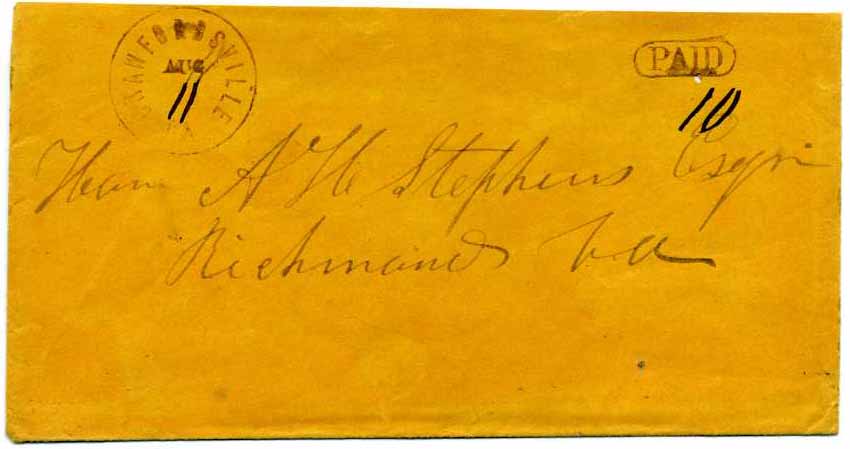 CRAWFORDSVILLE
AUG
11
PAID
10
Hon A H Stephens Esqr
Richmond Va